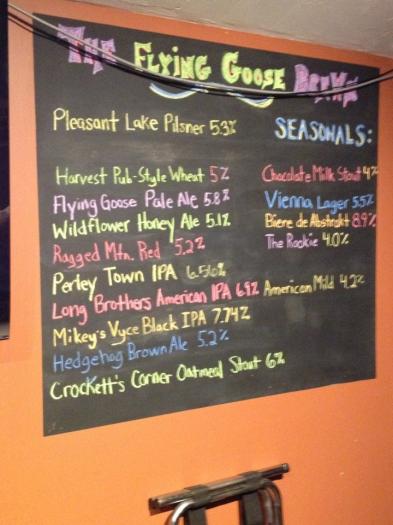 The Flying Goose Brews
Pleasant Lake Pilsner 5.3%
Harvest Pub-Style Wheat 5%
Flying Goose Pale Ale 5.8%
Wildflower Honey Ale 5.1%
Ragged Mtn. Red 5.2%
Perley Town IPA 6.56%
Long Brothers American IPA 6.2%
Mikey's Vyce Black IPA 7.74%
Hedgehog Brown Ale 5.2%
Crockett's Corner Oatmeal Stout 6%
SEASONALS:
Chocolate Milk Stout
Vienna Lager 5.5%
Biere de Abstrakt 8.9%
The Rookie 4.0%
American Mild 4.2%